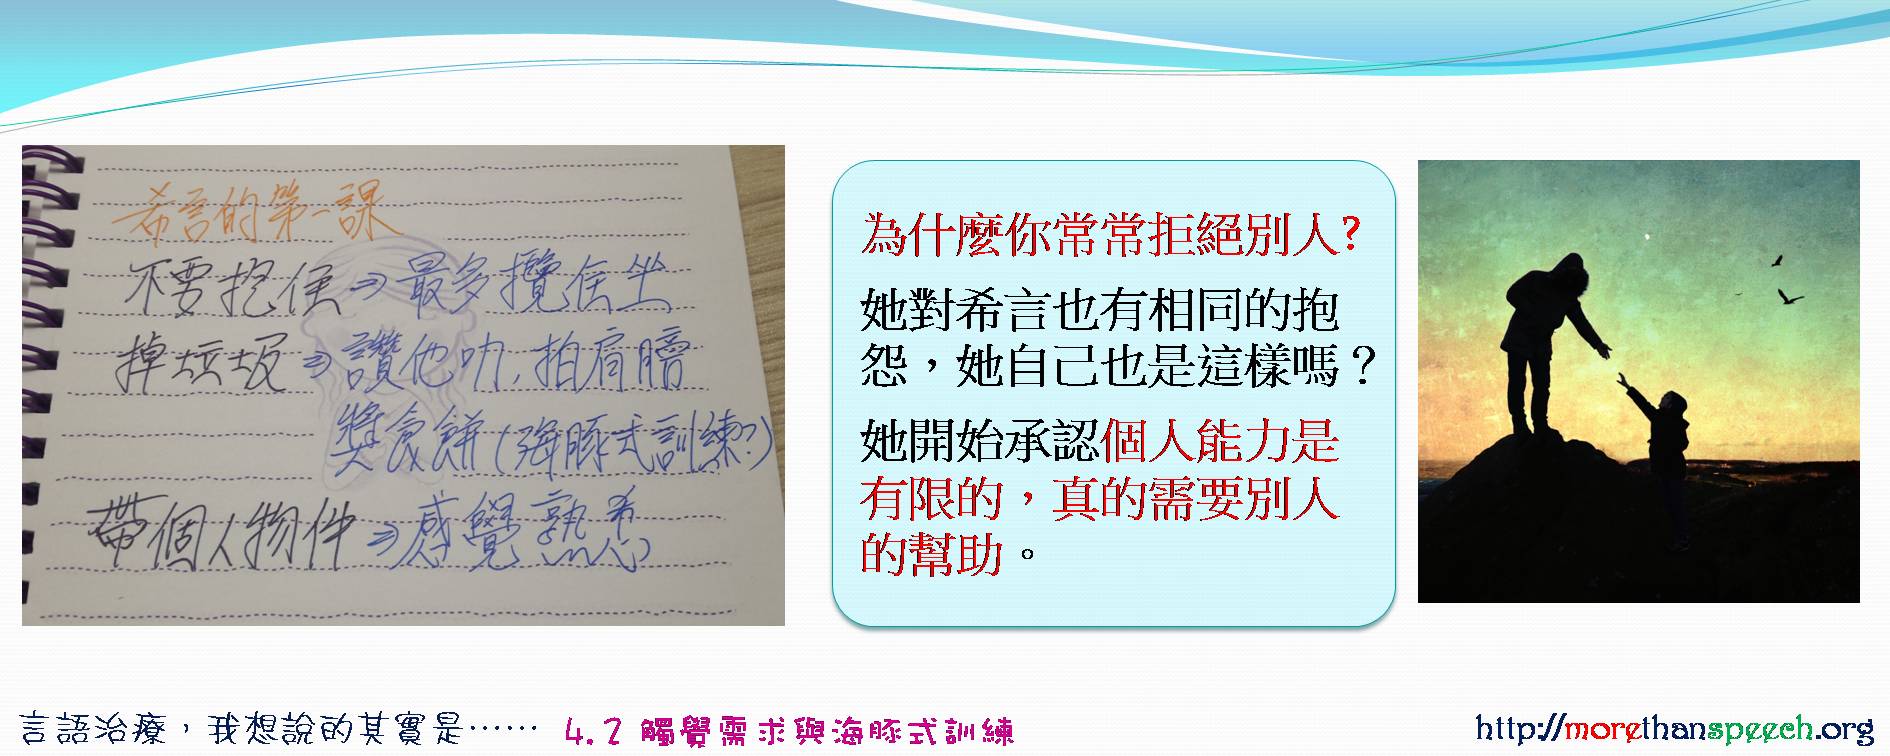 希言的第一課
不要抱住⇒最多攬住坐
掉垃圾⇒讚他叻,拍肩膊
獎食餅(海豚式訓練?)
帶個人物件⇒感覺熟悉
為什麼你常常拒絕別人?
她對希言也有相同的抱
怨，她自己也是這樣嗎？
她開始承認個人能力是
有限的，真的需要別人
的幫助。
言語治療，我想說的其實是…… 4.2 觸覺需求與海豚式訓練
http://morethanspeech.org